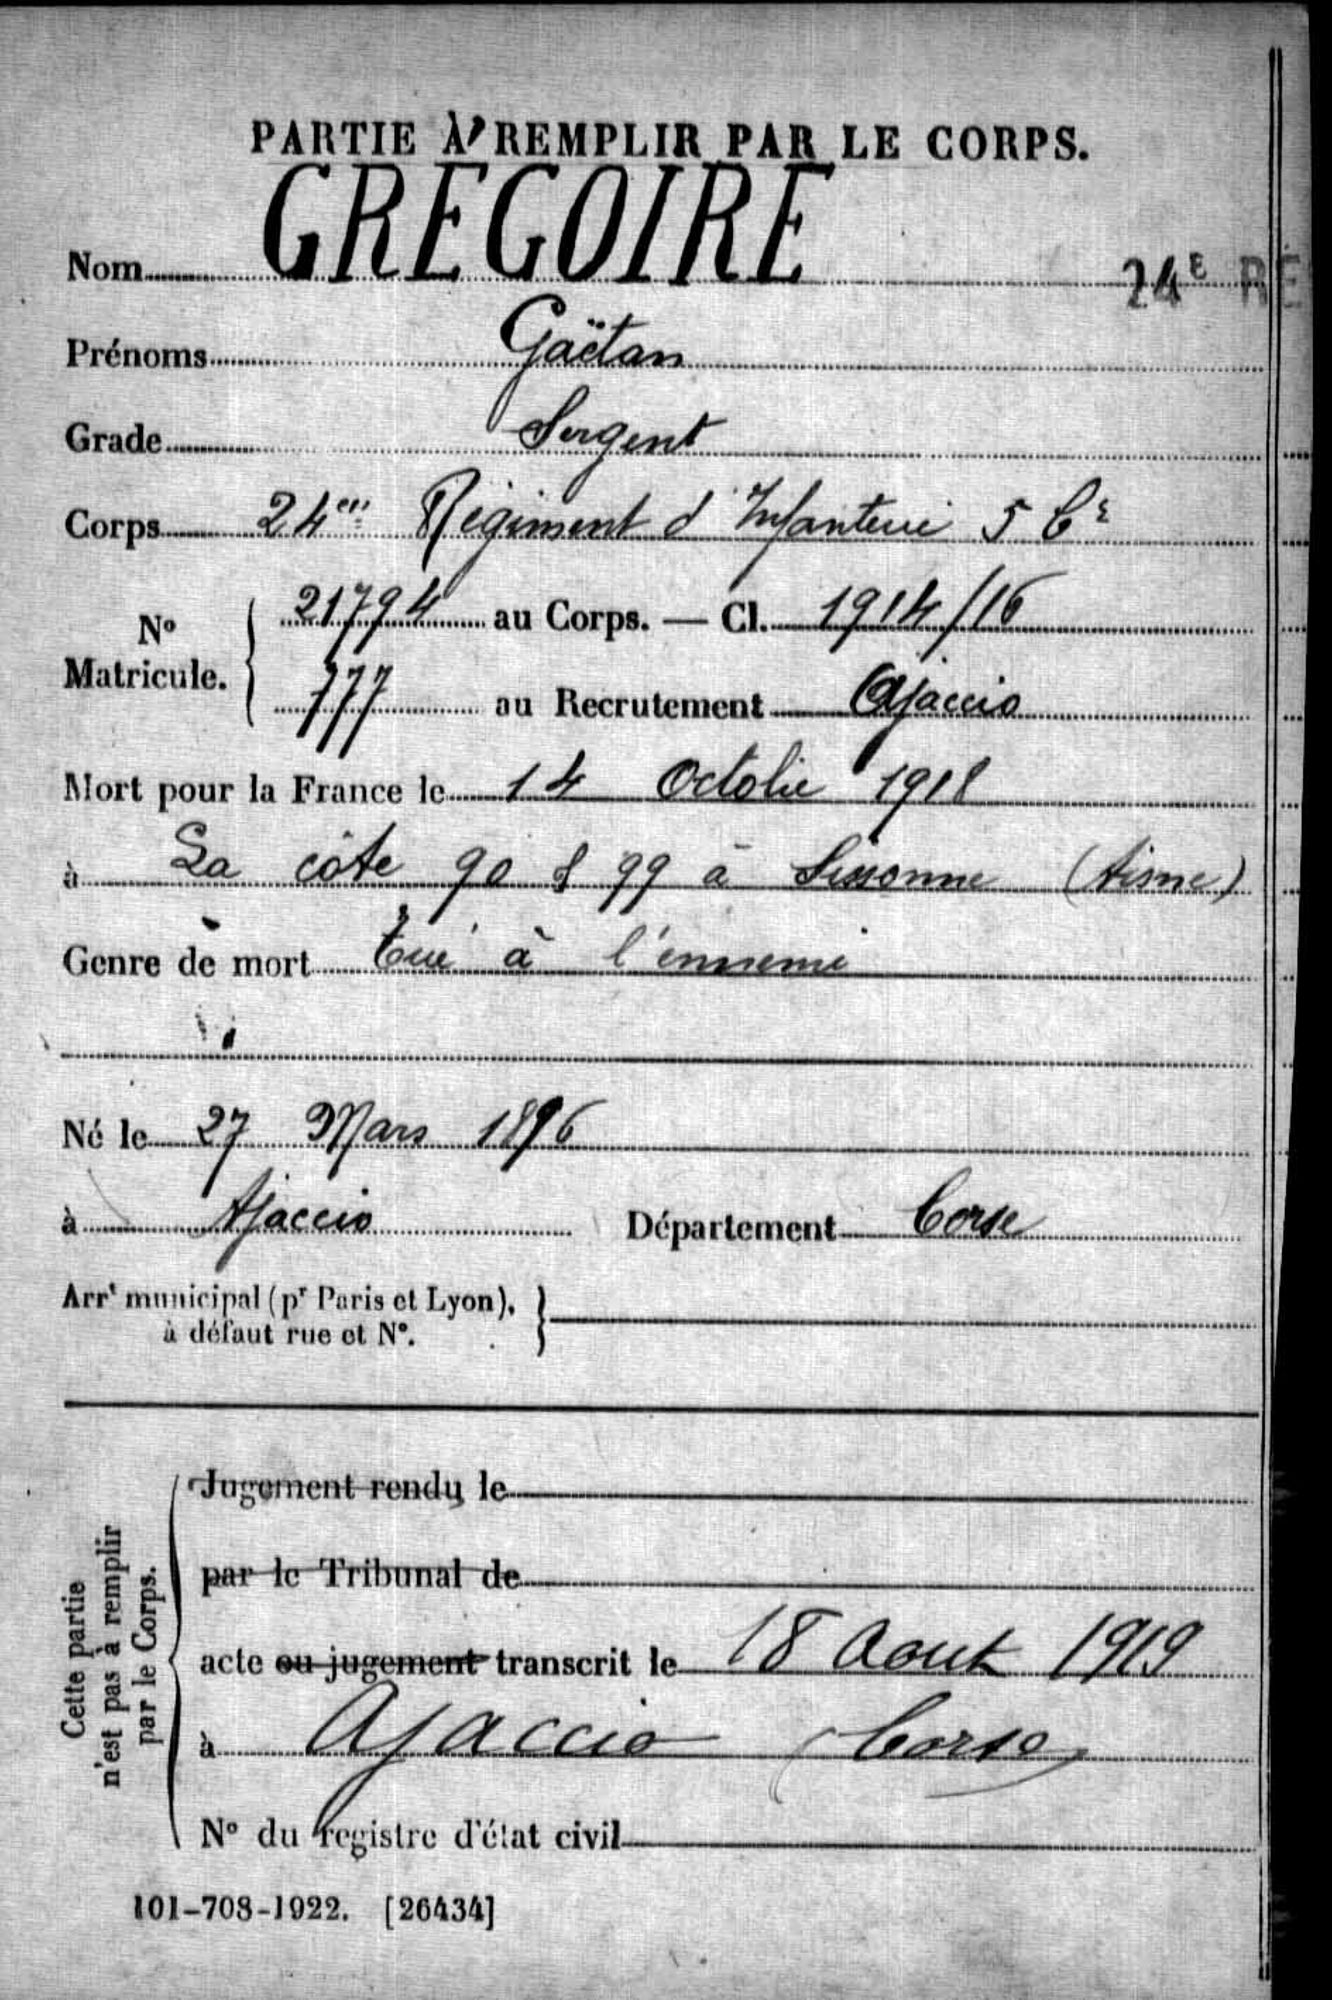 PARTIE À REMPLIR PAR LE CORPS.
Nom GREGOIRE
24E RE
Prénoms Gaëtan
Grade Sergent
Corps 24eme Régiment d'Infanterie 5 Cie
No Matricule. 21794 au Corps. — Cl. 1914/16
777 au Recrutement Ajaccio
Mort pour la France le 14 Octobre 1918
à La côte 90 & 99 à Sissonne (Aisne)
Genre de mort Tué à l'ennemi
Né le 27 Mars 1896
à Ajaccio Département Corse
Arrt municipal (pr Paris et Lyon),
à défaut rue et No.
Cette partie
n'est pas à remplir
par le Corps.
Jugement rendu le
par le Tribunal de
acte ou jugement transcrit le 18 Aout 1919
à Ajaccio (Corse)
No du registre d'état civil
101-708-1922. [26434]